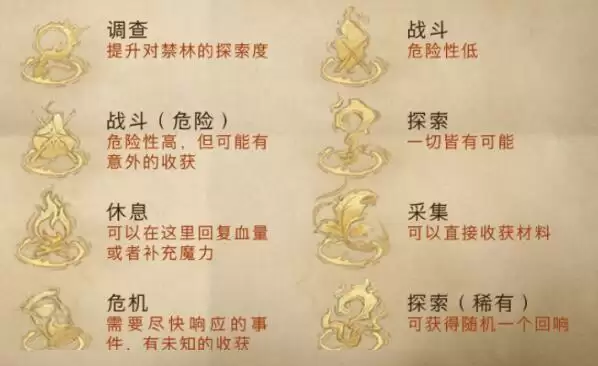 调查
提升对禁林的探索度
战斗
危险性低
战斗（危险）
危险性高，但可能有
意外的收获
探索
一切皆有可能
休息
可以在这里回复血量
或者补充魔力
采集
可以直接收获材料
危机
需要尽快响应的事
件，有未知的收获
探索（稀有）
可获得随机一个回响